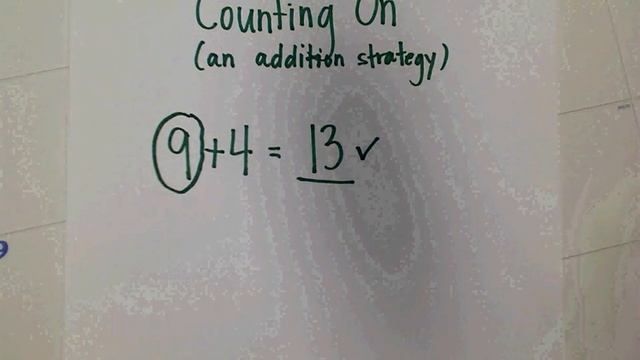 Counting On
(an addition strategy)
9+4 = 13 ✓
9